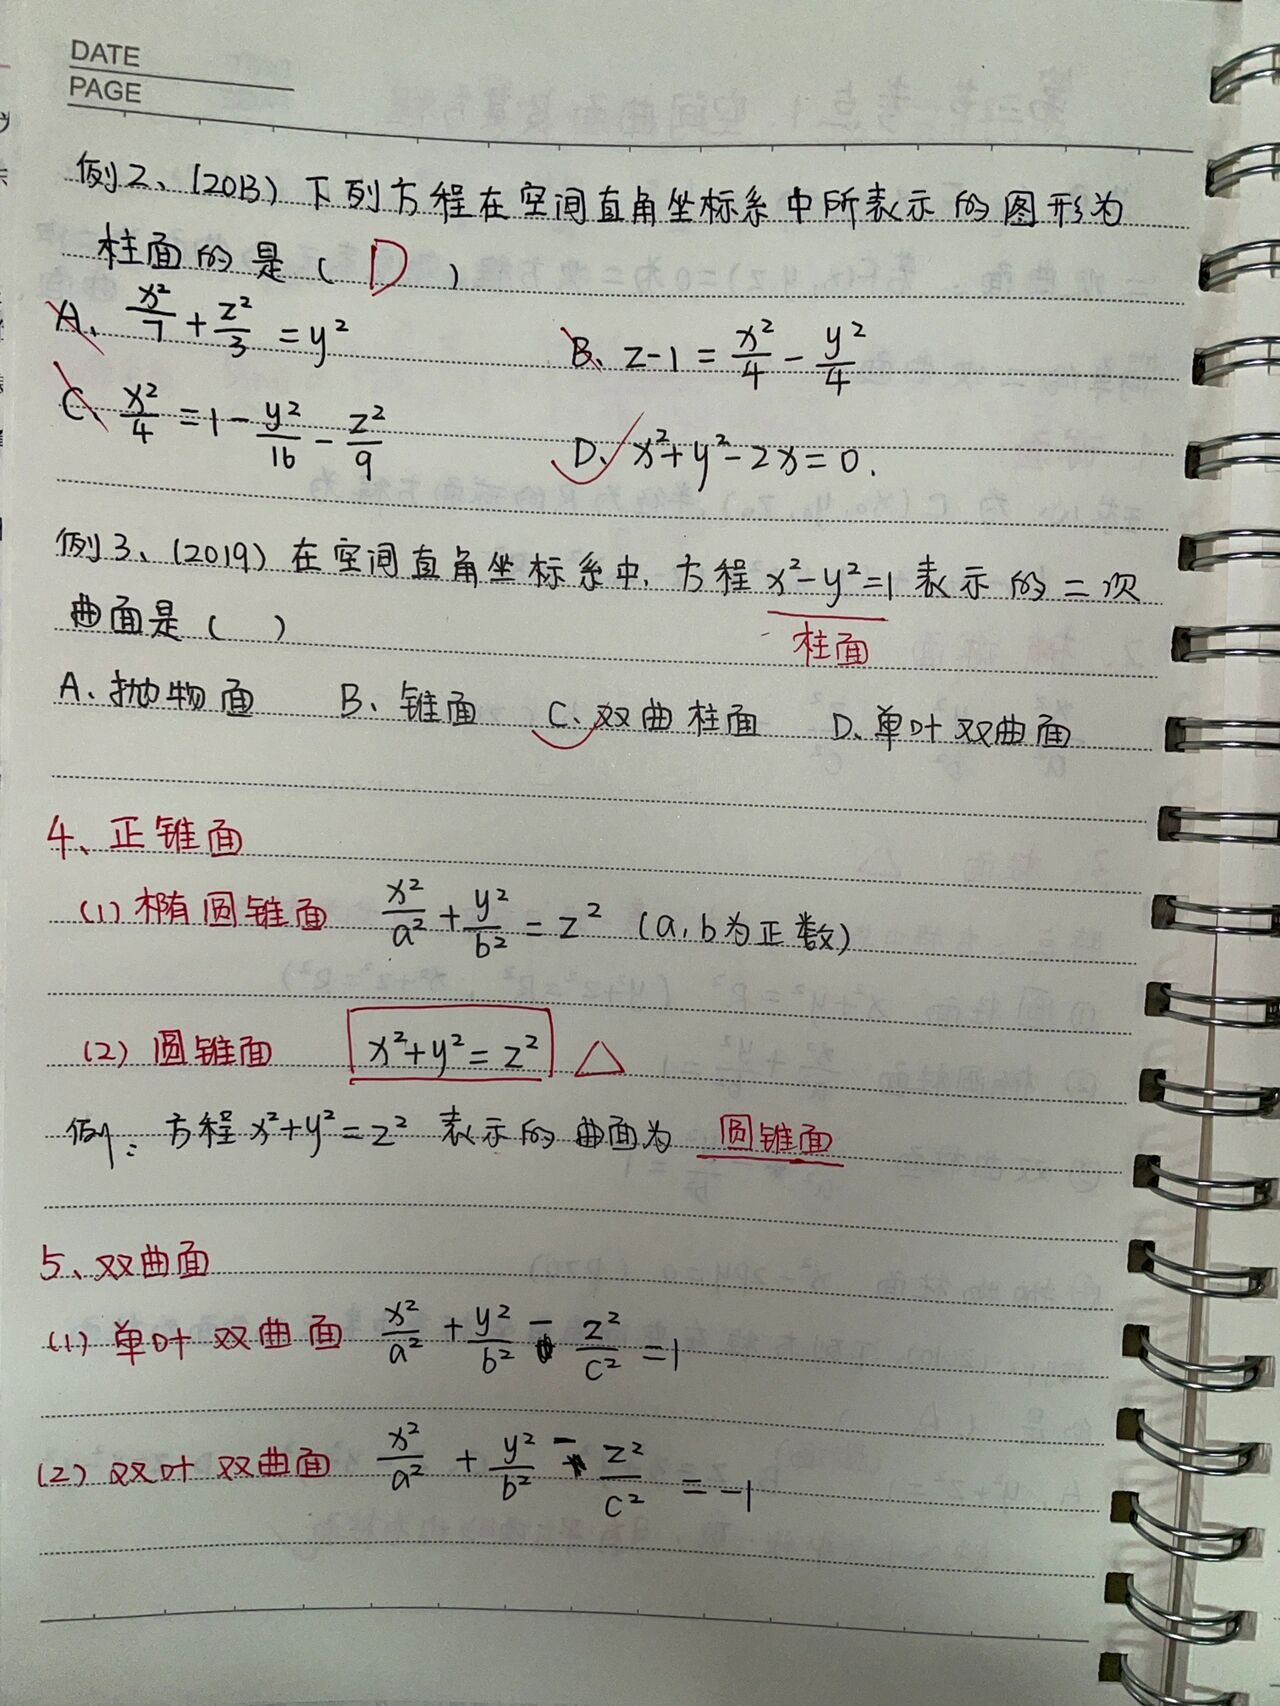 DATE
PAGE
例2、(2013) 下列方程在空间直角坐标系中所表示的图形为
柱面的是 ( D )
A、x²/7 + z²/3 = y²  B、z-1 = x²/4 - y²/4
C、x²/4 = 1 - y²/16 - z²/9  D、x²+y²-2x=0.
例3、(2019) 在空间直角坐标系中, 方程 x²-y²=1 表示的二次
曲面是 ( )
柱面
A、抛物面 B、锥面 C、双曲柱面 D、单叶双曲面
4、正锥面
(1) 椭圆锥面 x²/a² + y²/b² = z² (a, b为正数)
(2) 圆锥面 x²+y²=z² △
例: 方程 x²+y²=z² 表示的曲面为 圆锥面
5、双曲面
(1) 单叶双曲面 x²/a² + y²/b² - z²/c² = 1
(2) 双叶双曲面 x²/a² + y²/b² - z²/c² = -1